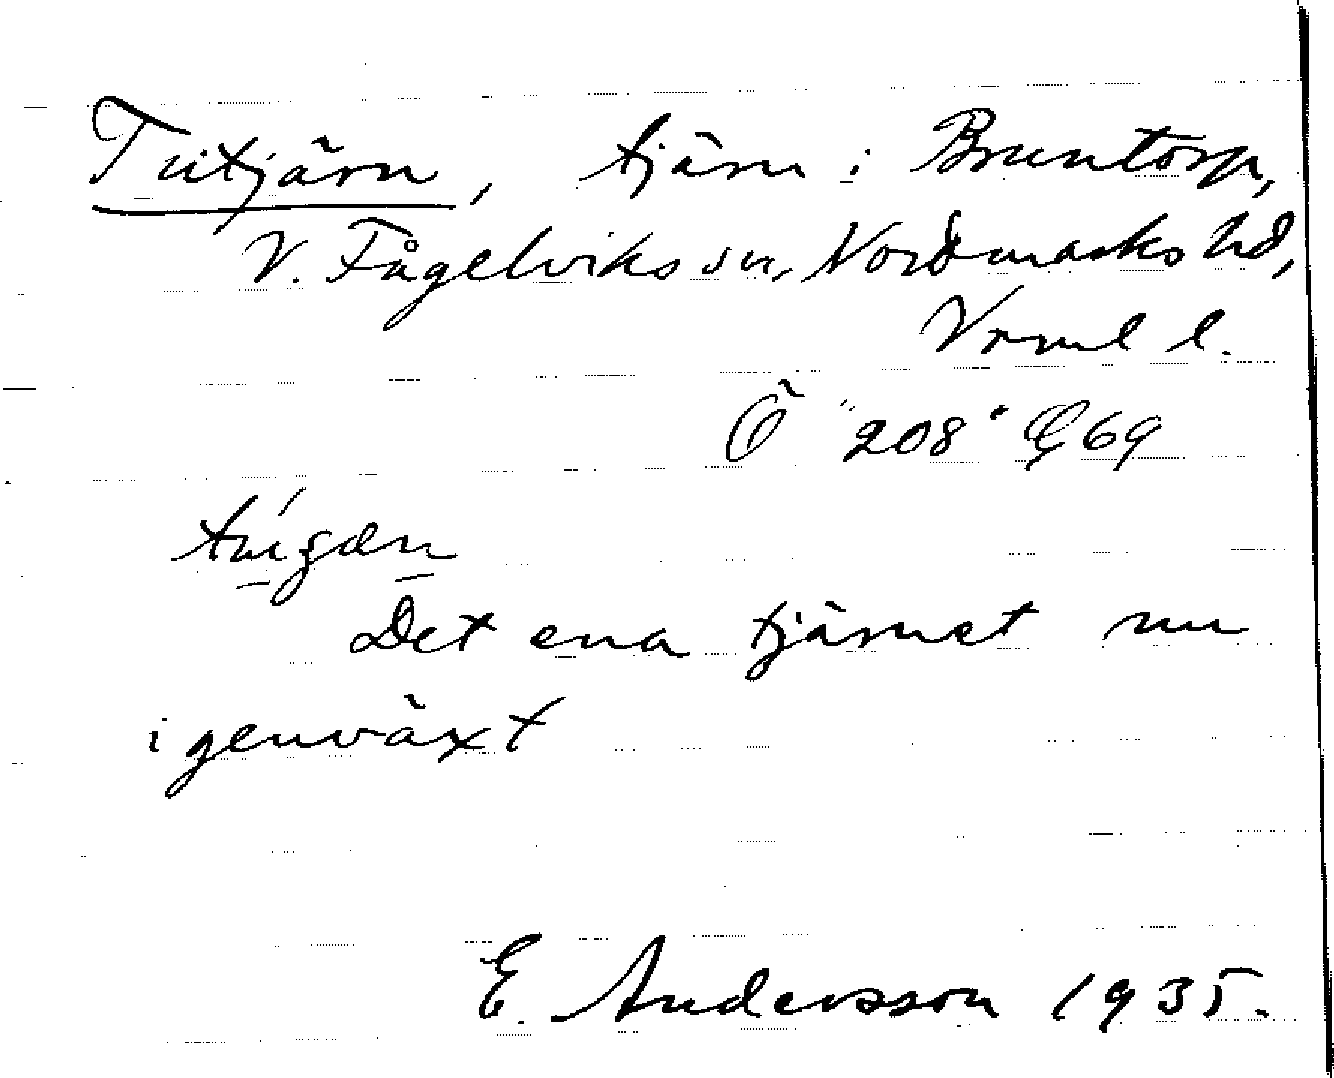 Tutjärn, tjärn i Bruntorp,
V. Fågelviks sn, Nordmarks hd,
Vrml l.
Ö 208 G 69
Det ena tjärnet nu
igenväxt
E. Andersson 1935.